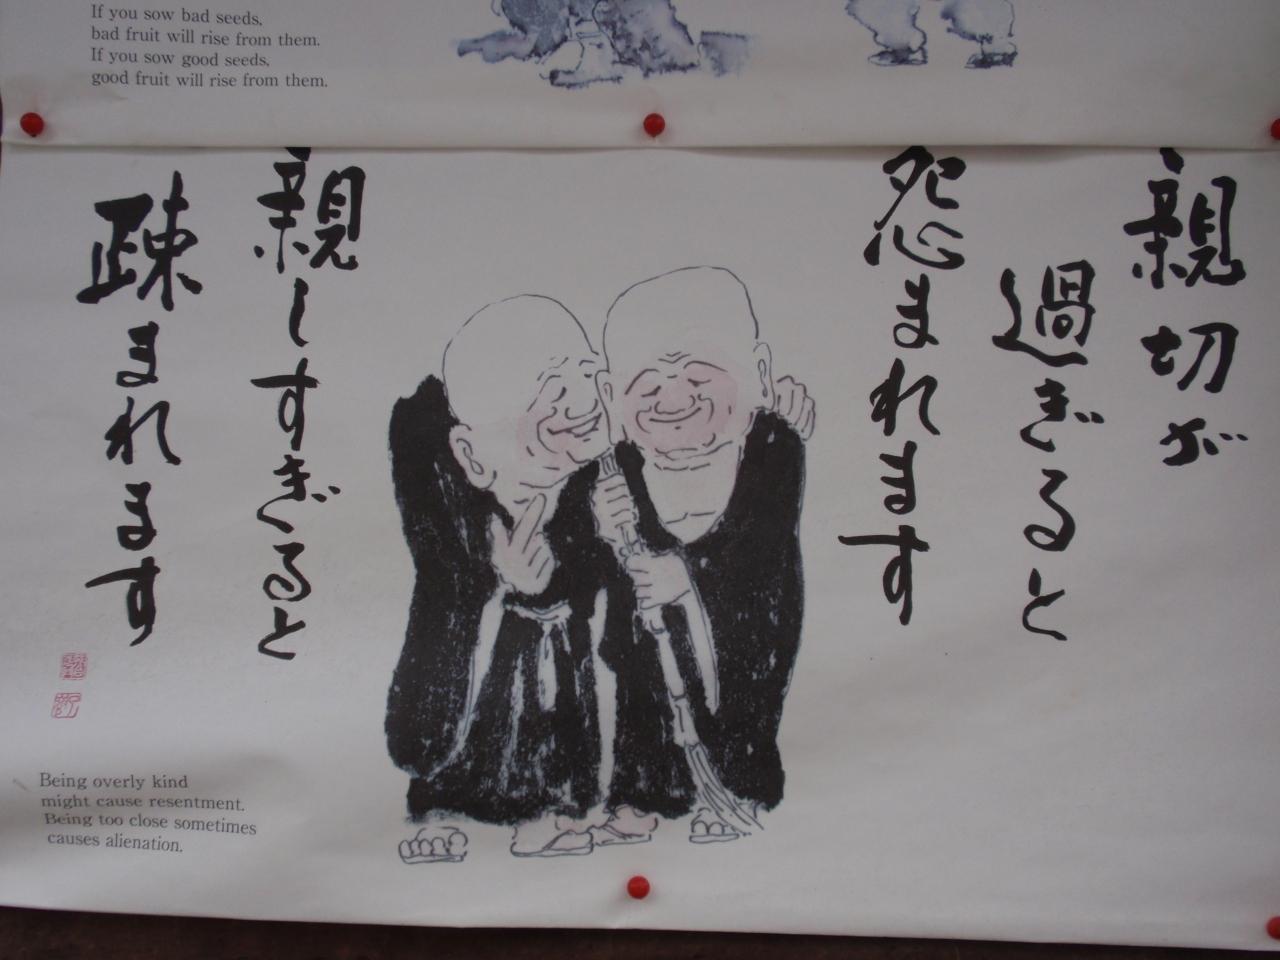 If you sow bad seeds,
bad fruit will rise from them.
If you sow good seeds,
good fruit will rise from them.
親切が
過ぎると
怨まれます
親しすぎると
疎まれます
Being overly kind
might cause resentment.
Being too close sometimes
causes alienation.